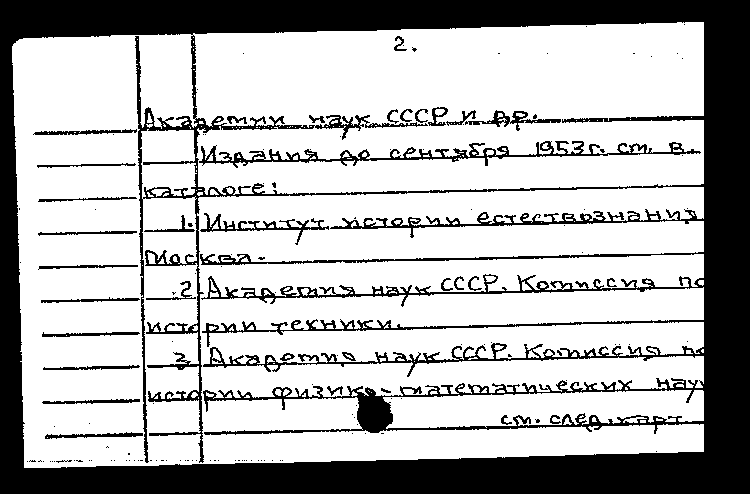 2.
Академии наук СССР и др.
Издания до сентября 1953 г. см. в.
каталоге:
1. Институт истории естествознания
Москва.
2. Академия наук СССР. Комиссия по
истории техники.
3. Академия наук СССР. Комиссия по
истории физико-математических наук
см. след. карт